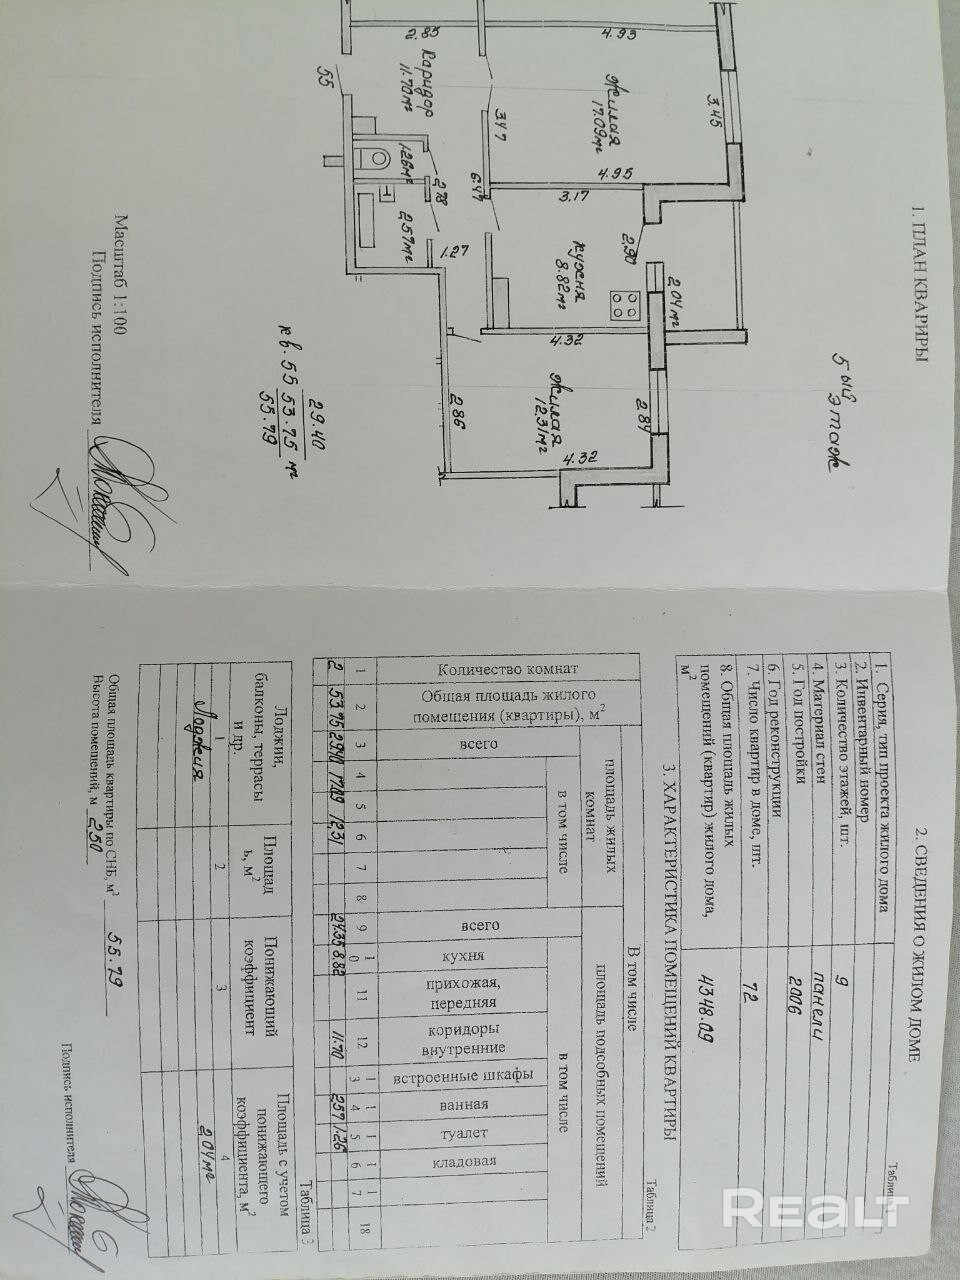 1. ПЛАН КВАРИРЫ
5ый этаж
4.93
3.45
Жилая
17.09м²
2.85
Каридор
11.70м²
55
3.47
4.95
3.17
6.47
1.26м²
2.78
2.57м²
1.27
2.90
Кухня
8.82м²
2.04м²
4.32
2.84
Жилая
12.31м²
2.86
4.32
29.40
кв. 55 53.75 м²
55.79
Масштаб 1:100
Подпись исполнителя
2. СВЕДЕНИЯ О ЖИЛОМ ДОМЕ
Таблица 1
1. Серия, тип проекта жилого дома
2. Инвентарный номер
3. Количество этажей, шт. 9
4. Материал стен панели
5. Год постройки 2006
6. Год реконструкции
7. Число квартир в доме, шт. 72
8. Общая площадь жилых
помещений (квартир) жилого дома, 4348.09
м²
3. ХАРАКТЕРИСТИКА ПОМЕЩЕНИЙ КВАРТИРЫ
Таблица 2
Количество комнат
Общая площадь жилого
помещения (квартиры), м²
В том числе
площадь жилых
комнат
площадь подсобных помещений
всего
в том числе
всего
в том числе
кухня
прихожая,
передняя
коридоры
внутренние
встроенные шкафы
ванная
туалет
кладовая
1 2 3 4 5 6 7 8 9 10 11 12 13 14 15 16 17 18
2 53.75 29.40 17.09 12.31 24.35 8.82 11.70 2.57 1.26
Таблица 3
Лоджии,
балконы, террасы
и др.
Площад
ь, м²
Понижающий
коэффициент
Площадь с учетом
понижающего
коэффициента, м²
1 2 3 4
Лоджия 2.04м²
Общая площадь квартиры по СНБ, м² 55.79
Высота помещений, м 2.50
Подпись исполнителя
REALT